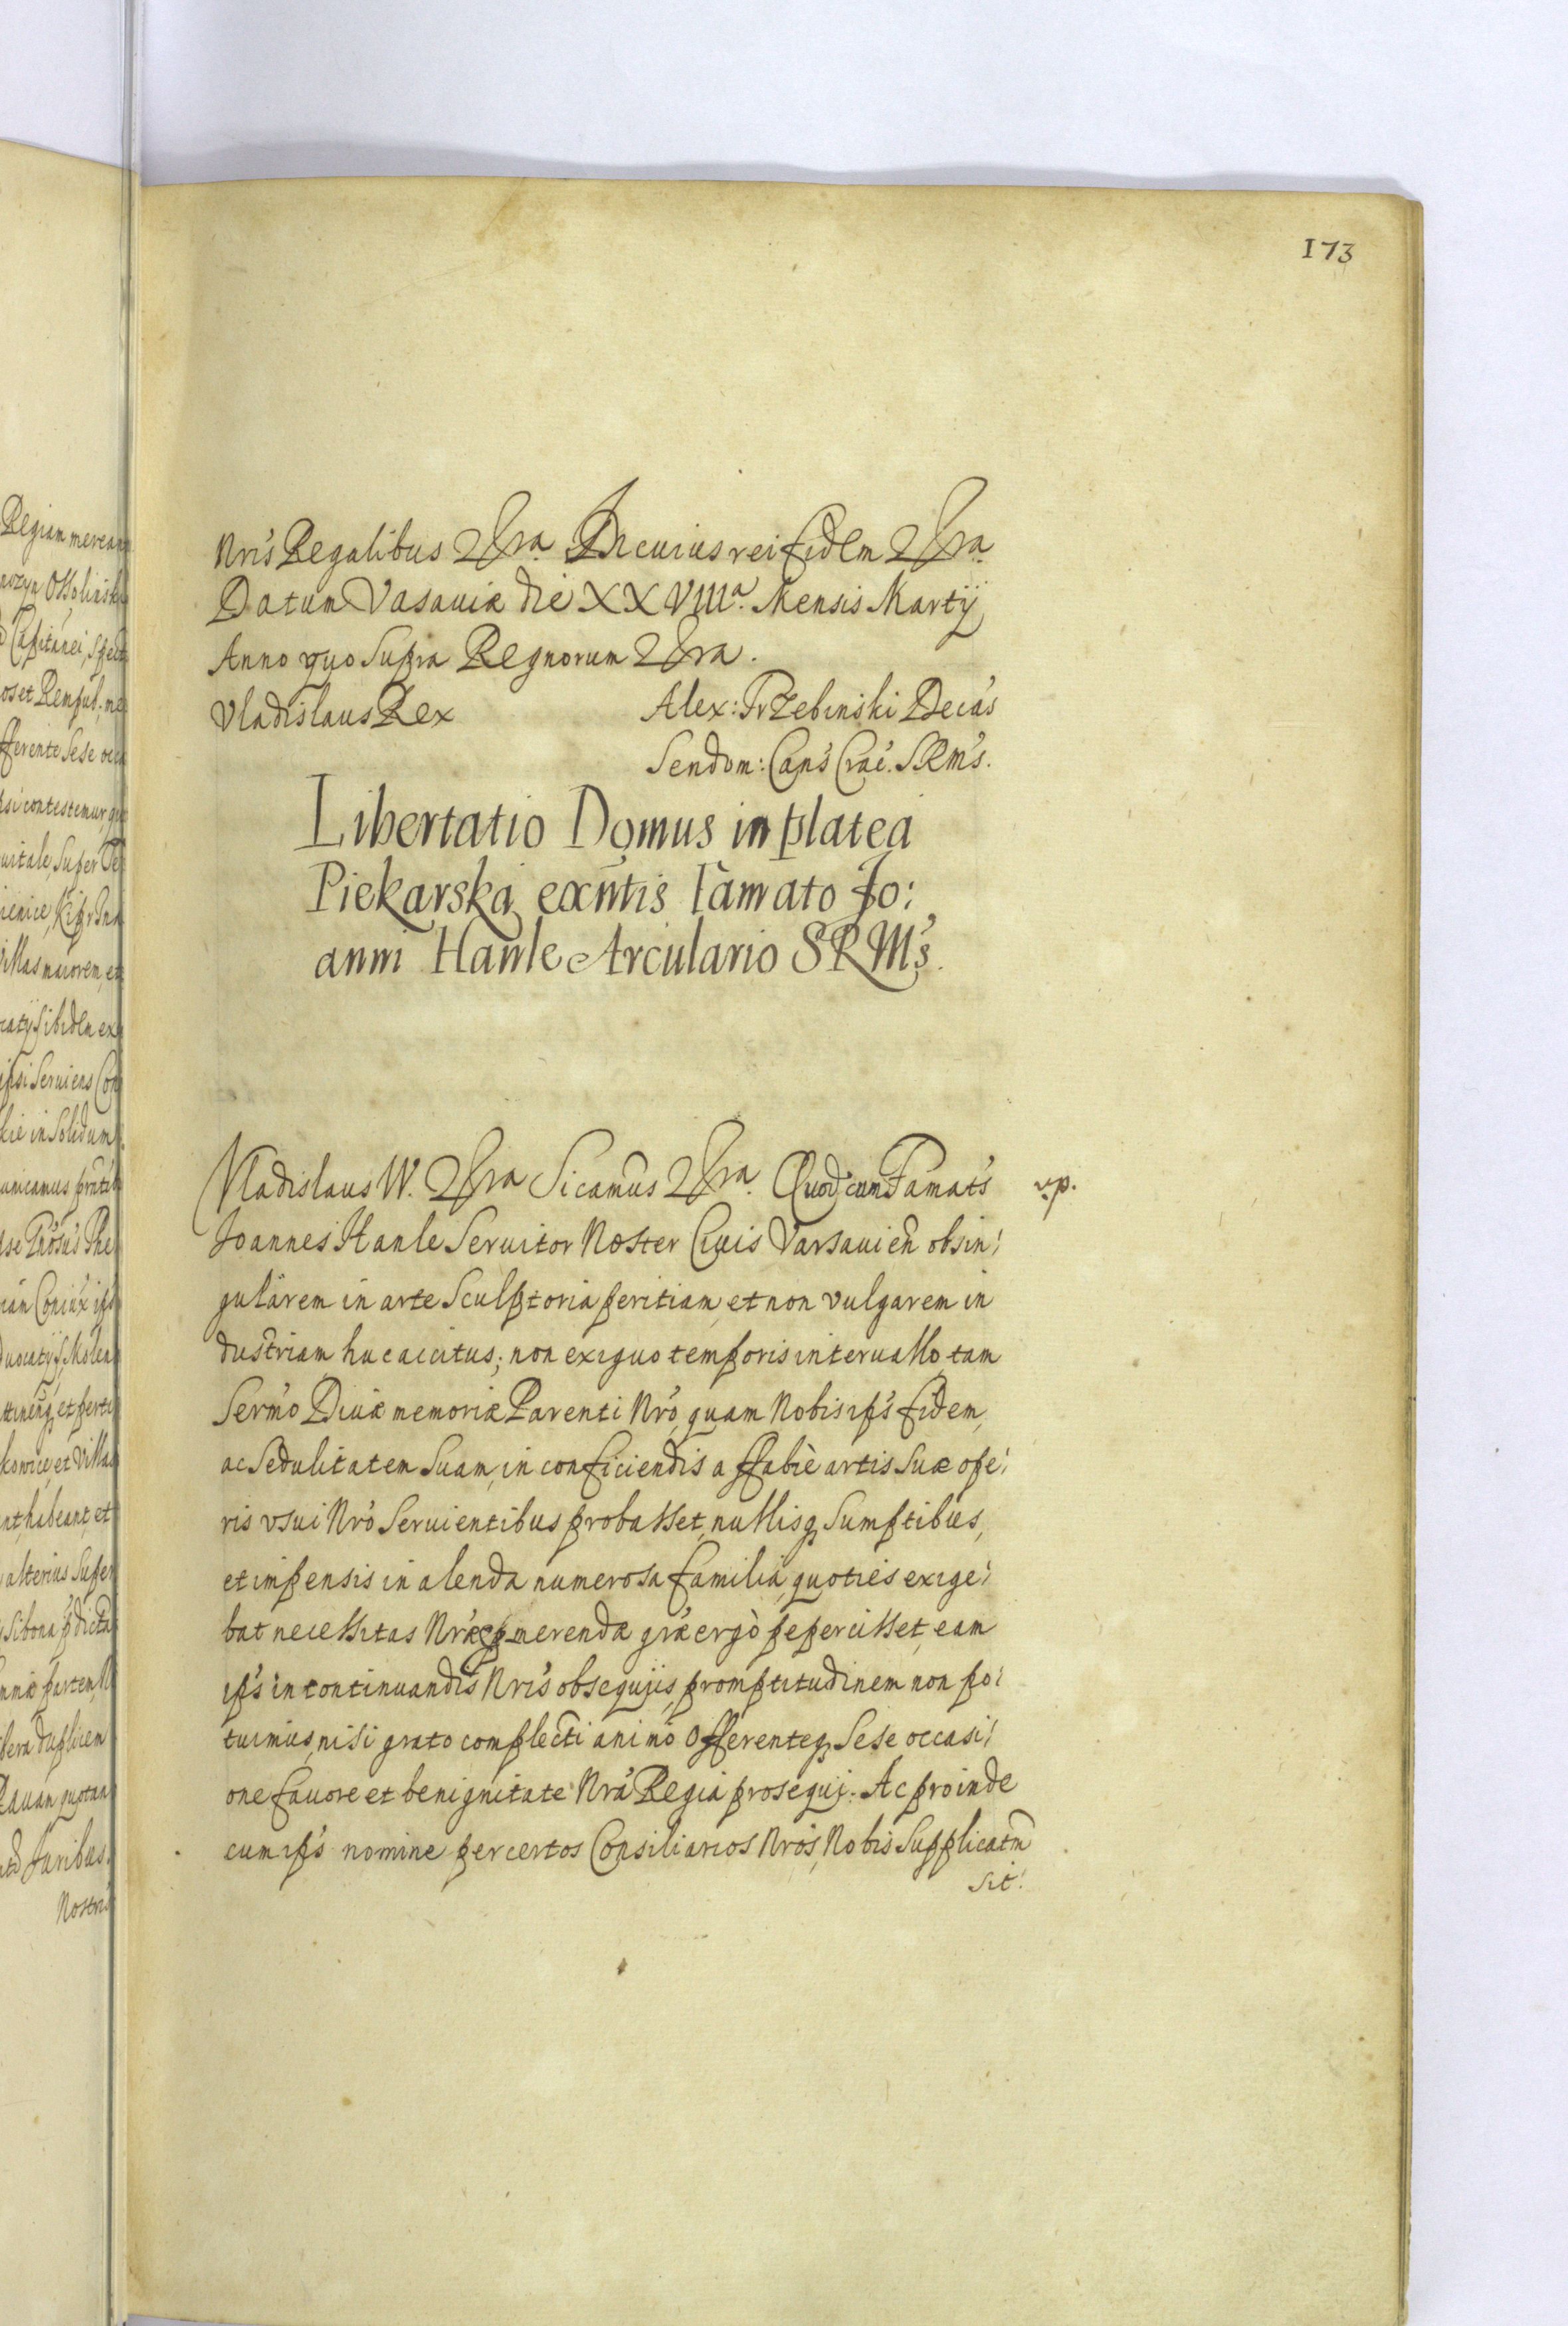 173
Nris Regalibus &ra In cuius rei fidem &ra
Datum Vasaviæ die XXVIIIa. Mensis Martÿ
Anno quo Supra Regnorum &ra.
Vladislaus Rex Alex: Trzebinski Decás
Sendom: Capś Crać. SRMś.
Libertatio Domus in platea
Piekarska exñtis famato Jo:
anni Hanle Arculario SRMś.
Vladislaus IV. &ra Sicamus &ra. Quod cum Famats
Joannes Hanle Servitor Noster Civis Varsavień ob sin:
gularem in arte Sculptoria peritiam, et non vulgarem in
dustriam huc accitus; non exiguo temporis intervallo tam
Sermo Divæ memoriæ Parenti Nro, quam Nobis ipś fidem,
ac Sedulitatem Suam, in conficiendis affabrè artis Suæ ope:
ris usui Nro Servientibus probasset, nullisq Sumptibus,
et impensis in alenda numerosa familia, quoties exige:
bat necessitas Nræ merendæ græ ergò pepercisset, eam
ipś in continuandis Nris obsequijs, promptitudinem non po:
tuimus, nisi grato complecti animo offerenteq Sese occasi:
one favore et benignitate Nra Regia prosequi. Ac proinde
cum ipś nomine per certos Consiliarios Nros, Nobis Supplicatm
sit.
Regiam merean
Ossolinski
Capitanei, Spect
os et Rempub. me
fferente Sese occa
psi contestemur, q
vitale, Super
Villas maiorem, et
catÿ Sibidem ex
ipsi Serviens Con
kie in Solidum
Coniux ips
et perti
kowice, et Villa
nt, habeant, et
alterius Super
Sibona pdicta
partem, N
bera duplicem
Ravan quotan
Juribus.
Nostris